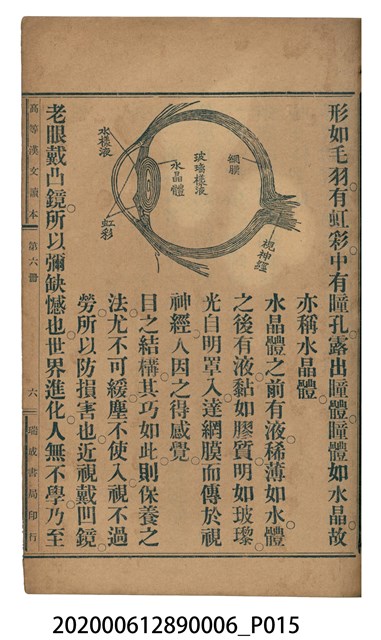 形如毛羽有虹彩中有瞳孔露出瞳體瞳體如水晶故
亦稱水晶體
水晶體之前有液稀薄如水體
之後有液黏如膠質明如玻瓈
光自明罩入達網膜而傳於視
神經人因之得感覺
目之結構其巧如此則保養之
法尤不可緩塵不使入視不過
勞所以防損害也近視戴凹鏡
老眼戴凸鏡所以彌缺憾也世界進化人無不學乃至
網膜
玻璃樣液
水晶體
水樣液
虹彩
視神經
高等漢文讀本 第六冊 六 瑞成書局印行
202000612890006_P015